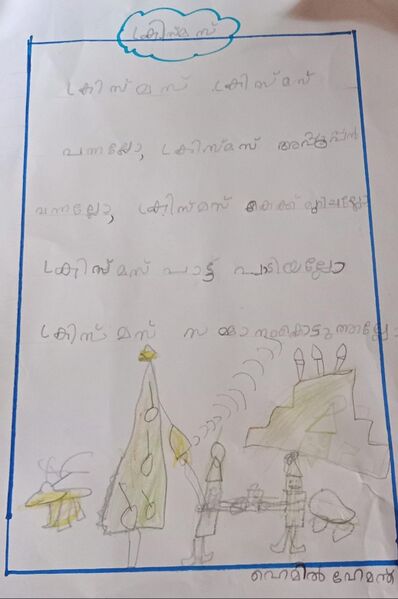 ക്രിസ്മസ്
ക്രിസ്മസ് ക്രിസ്മസ്
വന്നല്ലോ, ക്രിസ്മസ് അപ്പൂപ്പൻ
വന്നല്ലോ, ക്രിസ്മസ് കേക്ക്
ക്രിസ്മസ് പാട്ട് പാടിയല്ലോ
ക്രിസ്മസ്
ഹെമിൽ ഹേമന്ത്